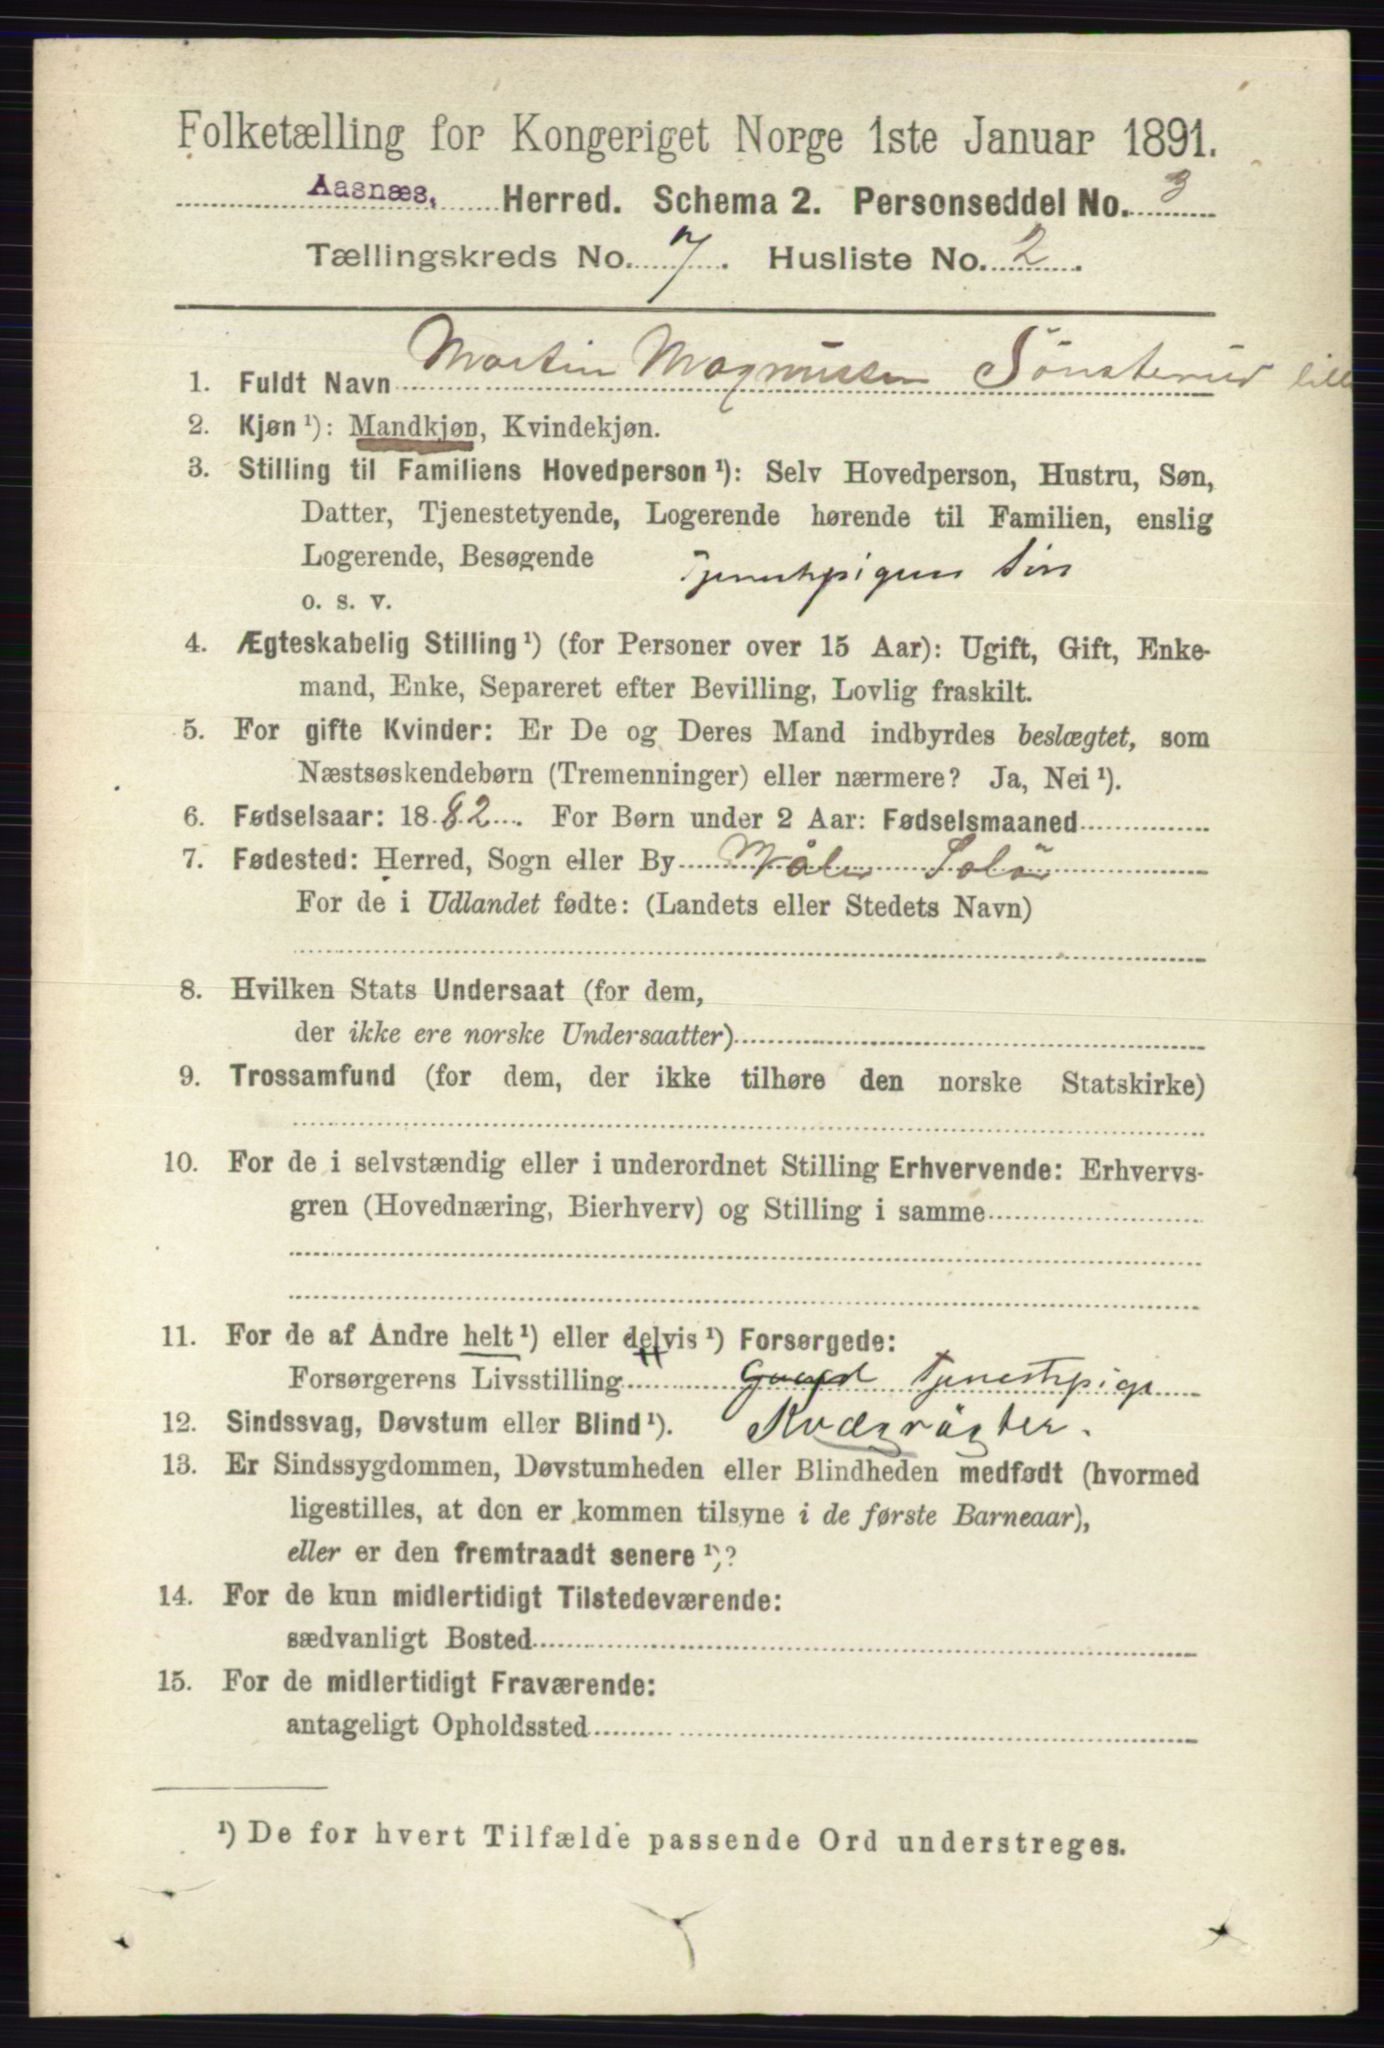 Folketælling for Kongeriget Norge 1ste Januar 1891.
Aasnæs, Herred. Schema 2. Personseddel No. 3
Tællingskreds No. 7. Husliste No. 2.
1. Fuldt Navn Martin Magnussen Sönsterud lille
2. Kjøn ¹): Mandkjøn, Kvindekjøn.
3. Stilling til Familiens Hovedperson ¹): Selv Hovedperson, Hustru, Søn,
Datter, Tjenestetyende, Logerende hørende til Familien, enslig
Logerende, Besøgende Tjenestepigens Sön
o. s. v.
4. Ægteskabelig Stilling ¹) (for Personer over 15 Aar): Ugift, Gift, Enke-
mand, Enke, Separeret efter Bevilling, Lovlig fraskilt.
5. For gifte Kvinder: Er De og Deres Mand indbyrdes beslægtet, som
Næstsøskendebørn (Tremenninger) eller nærmere? Ja, Nei ¹).
6. Fødselsaar: 1882. For Børn under 2 Aar: Fødselsmaaned
7. Fødested: Herred, Sogn eller By Våler Solör
For de i Udlandet fødte: (Landets eller Stedets Navn)
8. Hvilken Stats Undersaat (for dem,
der ikke ere norske Undersaatter)
9. Trossamfund (for dem, der ikke tilhøre den norske Statskirke)
10. For de i selvstændig eller i underordnet Stilling Erhvervende: Erhvervs-
gren (Hovednæring, Bierhverv) og Stilling i samme
11. For de af Andre helt ¹) eller delvis ¹) Forsørgede:
Forsørgerens Livsstilling Tjenestepige
12. Sindssvag, Døvstum eller Blind ¹). Kvægrögter.
13. Er Sindssygdommen, Døvstumheden eller Blindheden medfødt (hvormed
ligestilles, at den er kommen tilsyne i de første Barneaar),
eller er den fremtraadt senere ¹)?
14. For de kun midlertidigt Tilstedeværende:
sædvanligt Bosted
15. For de midlertidigt Fraværende:
antageligt Opholdssted
¹) De for hvert Tilfælde passende Ord understreges.